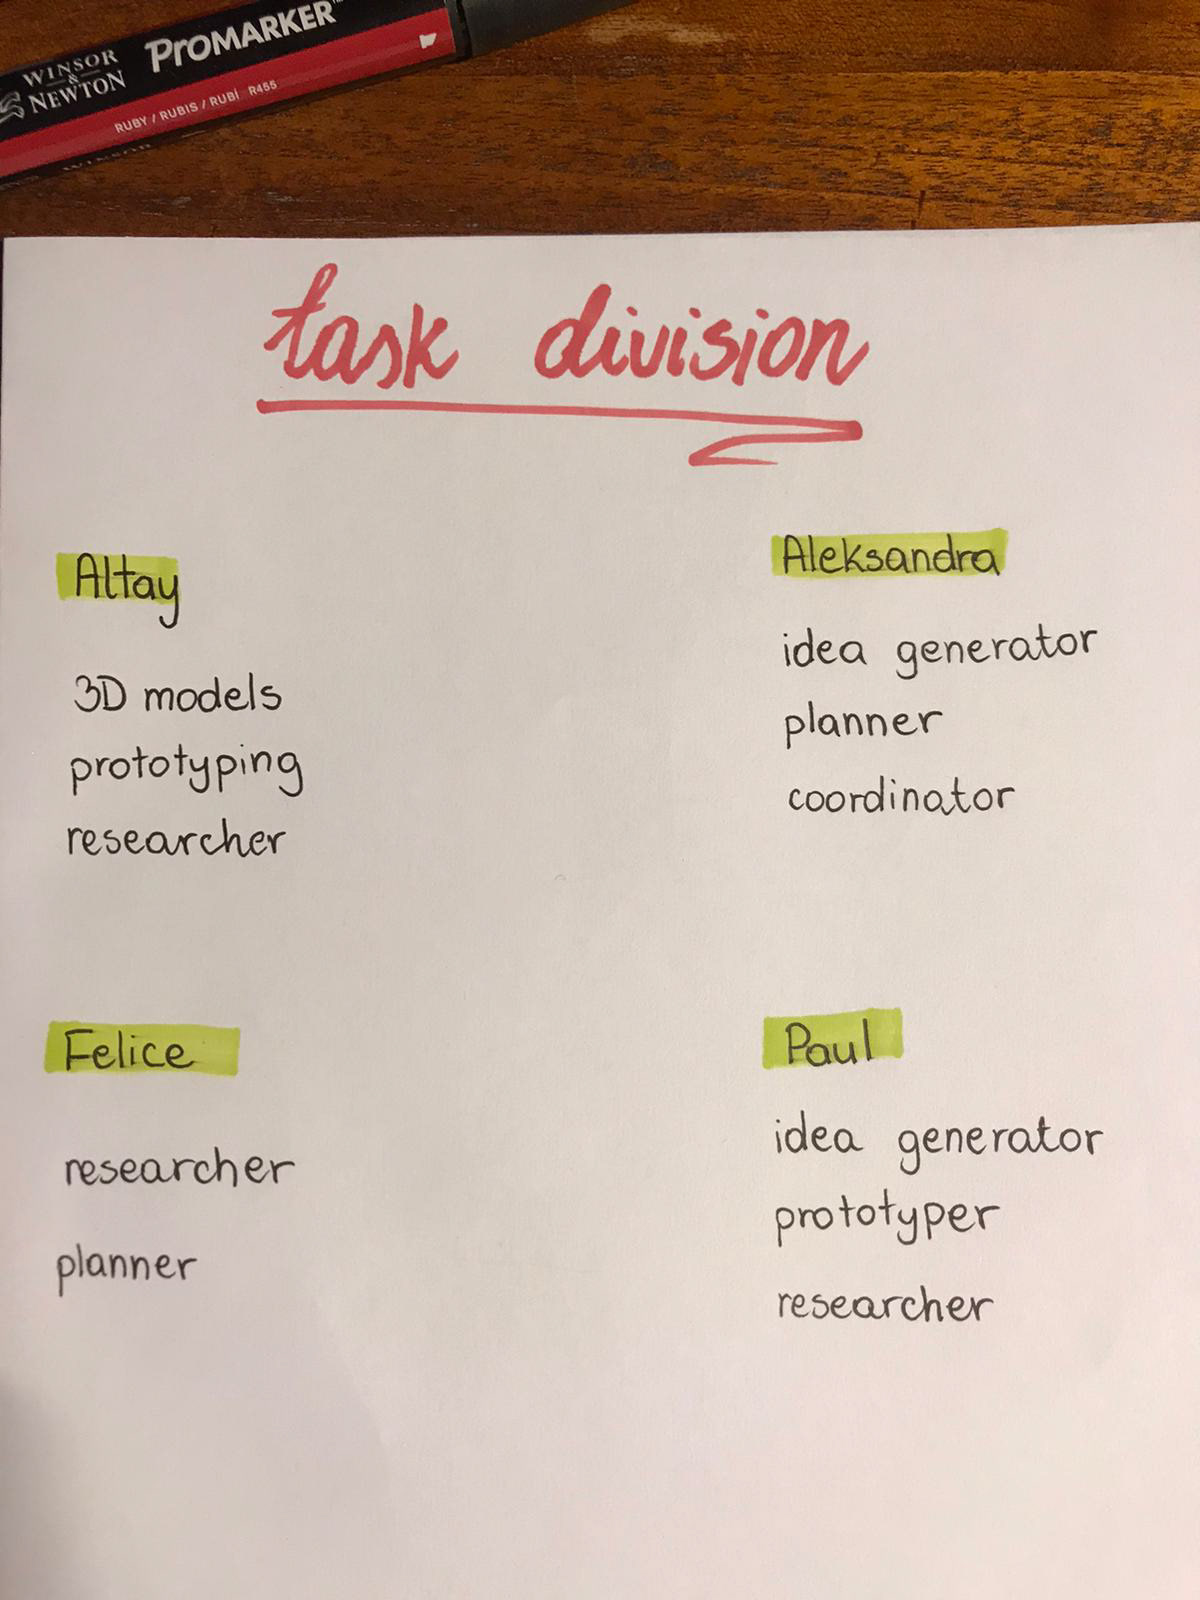 WINSOR
&
NEWTON
PROMARKER™
RUBY / RUBIS / RUBÍ R455
WINSOR
task division
Altay
3D models
prototyping
researcher
Aleksandra
idea generator
planner
coordinator
Felice
researcher
planner
Paul
idea generator
prototyper
researcher